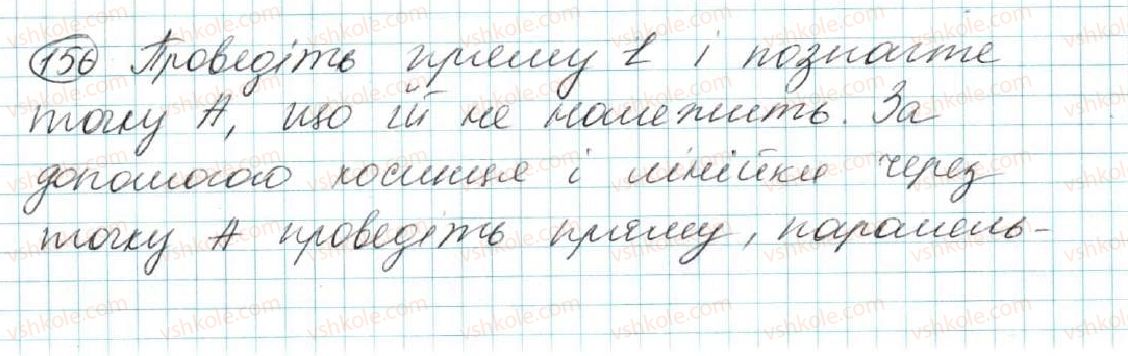 156 Проведіть пряму l і позначте
точку А, що їй не належить. За
допомогою косинця і лінійки через
точку А проведіть пряму, паралель-